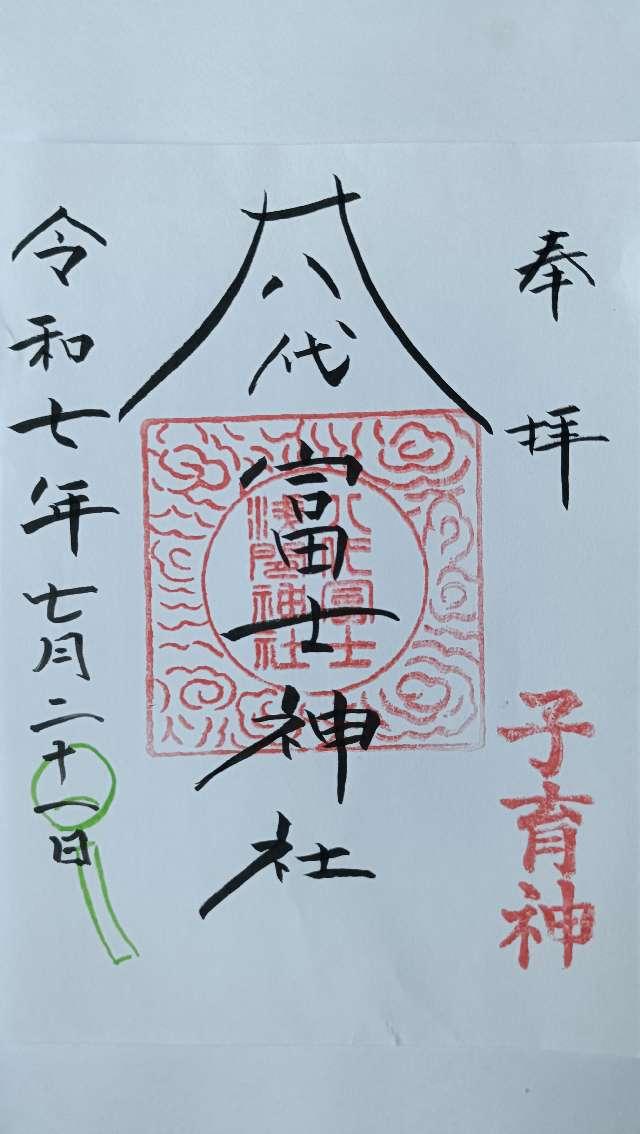 奉拝
子育神
八代
富士神社
八代冨士
浅間神社
令和七年七月二十一日